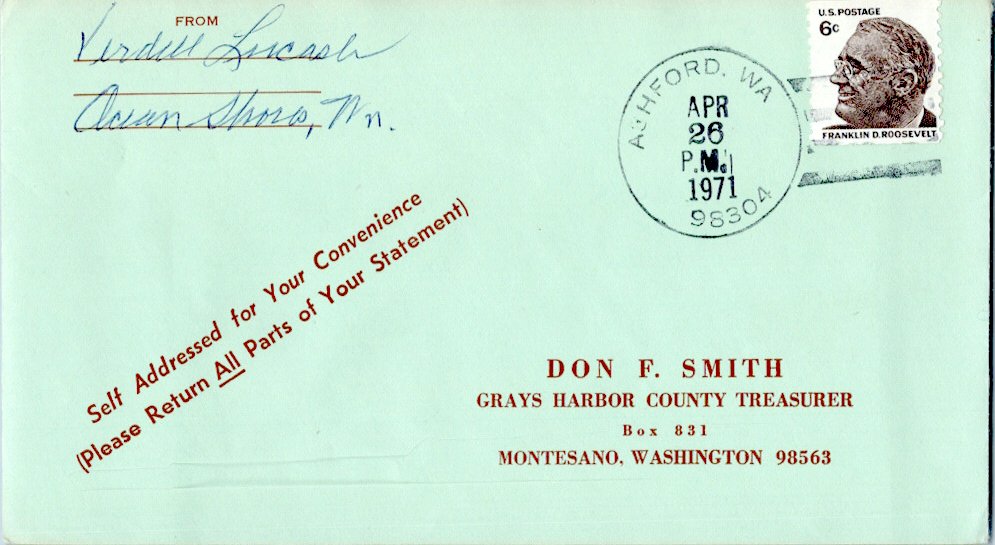 FROM
Verdell Lucash
Ocean Shores, Wn.
U.S. POSTAGE
6c
FRANKLIN D. ROOSEVELT
ASHFORD, WA
APR
26
P.M.
1971
98304
Self Addressed for Your Convenience
(Please Return All Parts of Your Statement)
DON F. SMITH
GRAYS HARBOR COUNTY TREASURER
Box 831
MONTESANO, WASHINGTON 98563